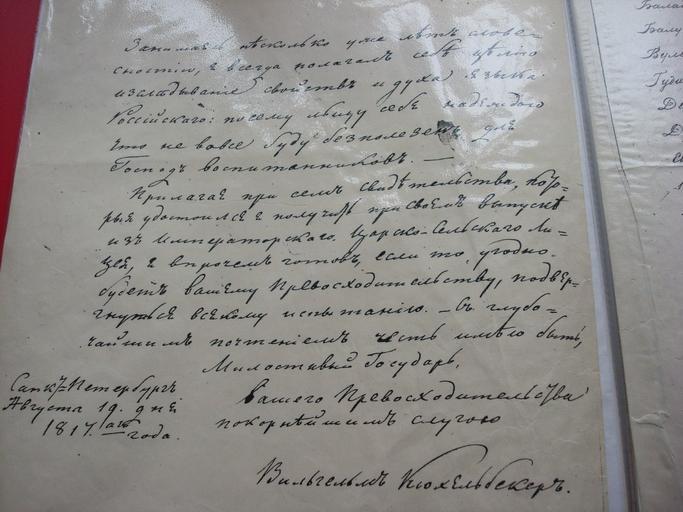 Занимаясь нѣсколько уже лѣтъ слове-
сностію, я всегда полагалъ себѣ цѣлію
изслѣдованіе свойствъ и духа языка
Россійскаго: посему льщу себя надеждою
что не вовсе буду безполезенъ для
Господъ воспитанниковъ. —
Прилагая при семъ свидѣтельства, кото-
рыя удостоился я получить при своемъ выпускѣ
изъ Императорскаго Царско-Сельскаго Ли-
цея, я впрочемъ готовъ, если то угодно
будетъ вашему Превосходительству, подвер-
гнуться всякому испытанію. — Съ глубо-
чайшимъ почтеніемъ честь имѣю быть,
Милостивый Государь,
вашего Превосходительства
покорнѣйшимъ слугою
Санктъ-Петербургъ
Августа 19. дня
1817.аго года.
Вильгельмъ Кюхельбекеръ.
Бала
 Вуль